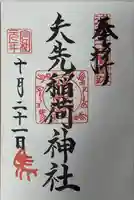 奉拝
矢先稲荷神社
十月二十一日